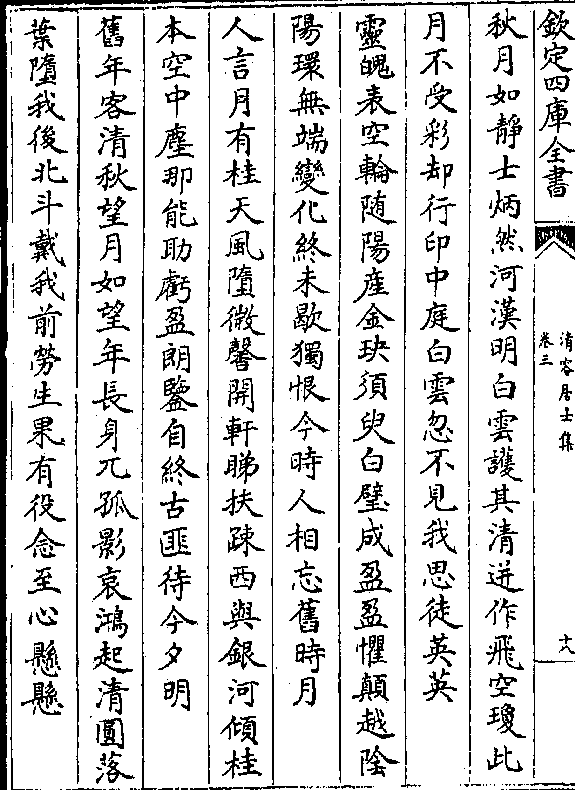 欽定四庫全書
清容居士集
卷三
十八
秋月如靜士炳然河漢明白雲護其清迸作飛空瓊此
月不受彩却行印中庭白雲忽不見我思徒英英
靈魄表空輪随陽産金玦須臾白璧成盈盈懼顛越陰
陽環無端變化終未歇獨恨今時人相忘舊時月
人言月有桂天風墮微馨開軒睇扶疎西與銀河傾桂
本空中塵那能助虧盈朗鑒自終古匪待今夕明
舊年客清秋望月如望年長身兀孤影哀鴻起清圓落
葉墮我後北斗戴我前勞生果有役念至心懸懸